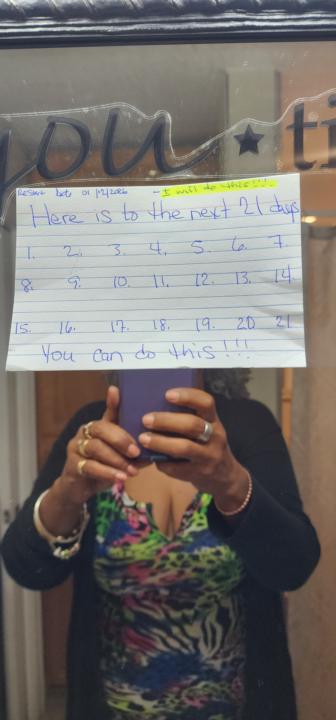 you ★ ti
Restart date 01/12/2026 - I will do this!!!
Here is to the next 21 days
1. 2. 3. 4. 5. 6. 7.
8. 9. 10. 11. 12. 13. 14
15. 16. 17. 18. 19. 20 21
You can do this!!!